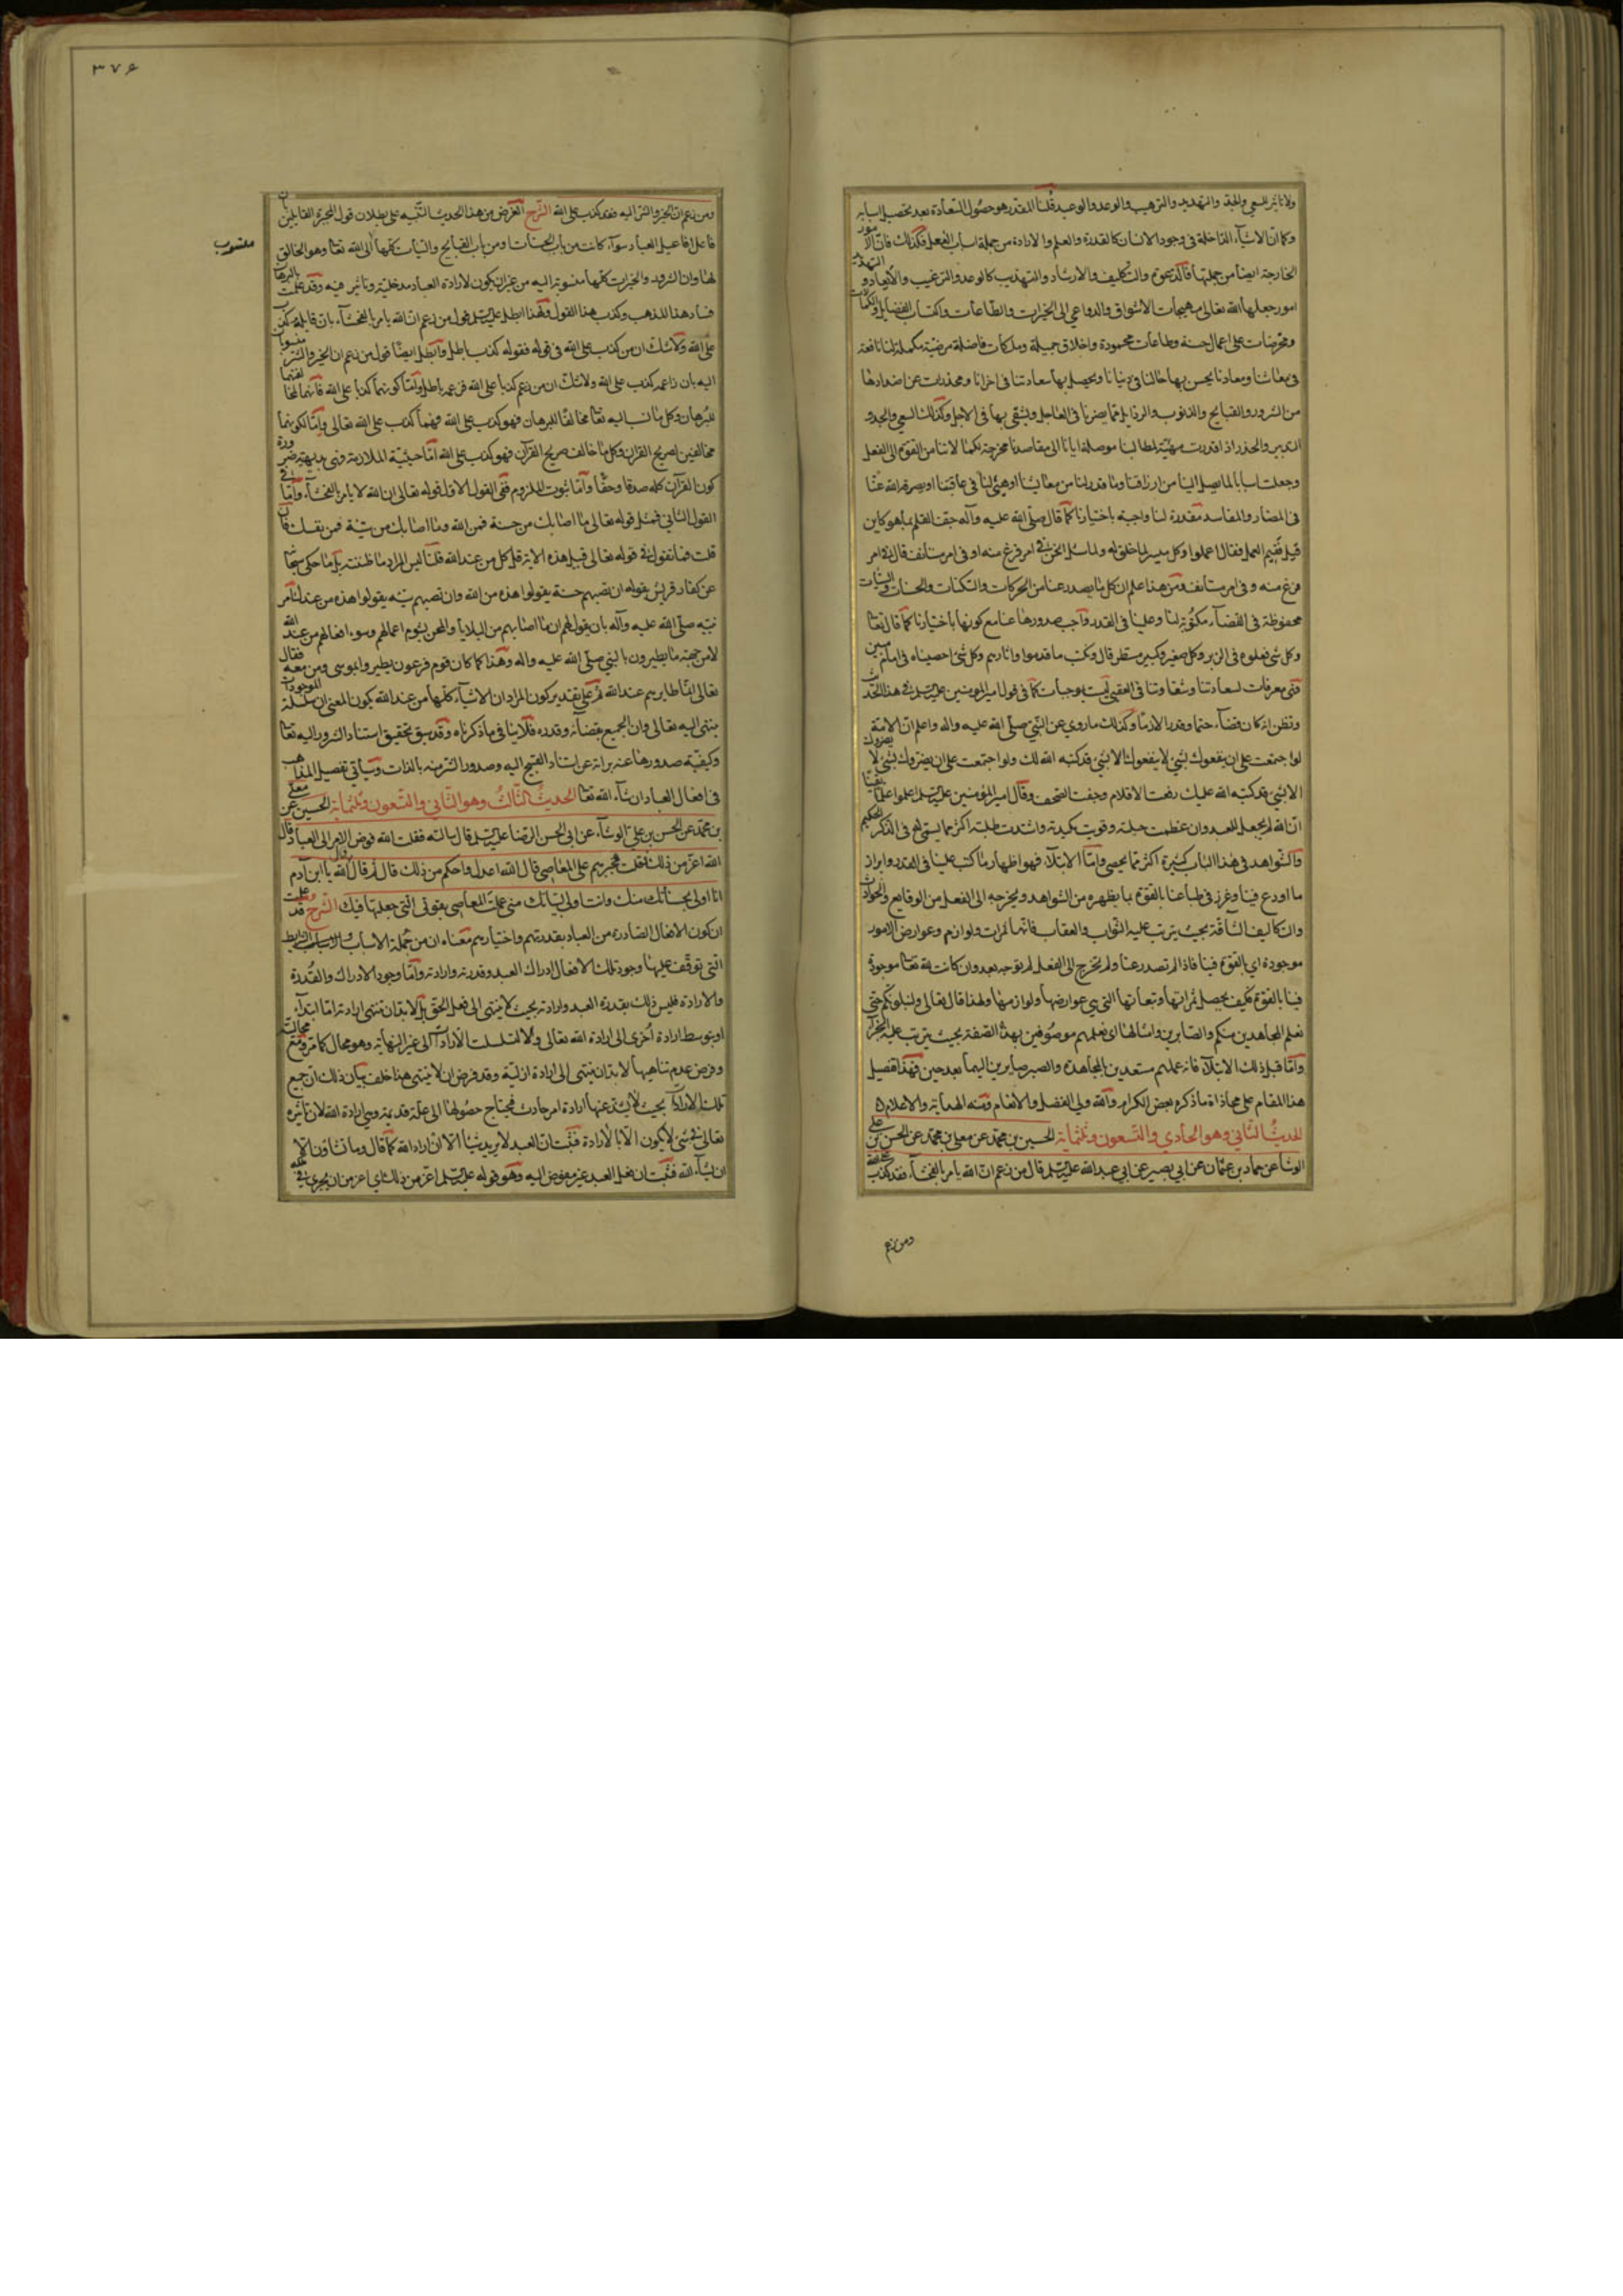 ولا تأثير للسعي والجد والتهديد والترهيب والوعد والوعيد قلنا المقدر هو حصول السعادة بعد تحصيل اسبابه
وكما ان الاشياء الداخلة في وجود الانسان كالقدرة والعلم والارادة من جملة اسباب الفعل فكذلك فان الامور
الخارجة ايضا من جملتها فالدعوة والتكليف والارشاد والتهذيب كالوعد والترغيب والايعاد والتهديد
امور جعلها الله تعالى مهيجات الاشواق والدواعي الى الخيرات والطاعات واكتساب الفضايل والكمالات
ومحرضات على اعمال حسنة وطاعات محمودة واخلاق جميلة وملكات فاضلة مرضية مكملة لنا نافعة
في معاشنا ومعادنا يحسن بها حالنا في دنيانا ويحصل بها سعادتنا في اخرانا ومحذرات عن اضدادها
من الشرور والقبايح والذنوب والرذايل مما يضرنا في العاجل ويشقى بها في الاجل وكذلك السعي والجد و
التدبير والحذر اذ اقدرت مهيئة لمطالبنا موصلة ايانا الى مقاصدنا مخرجة لكمالاتنا من القوة الى الفعل
وجعلت اسبابا لما يصل الينا من ارزاقنا وما قدر لنا من معايشنا او هيئ لنا في عاقبتنا او يصرف الله عنا
في المضار والمفاسد مقدرة لنا واجبة باختيارنا كما قال صلى الله عليه وآله جف القلم بما هو كاين
قيل ففيم العمل فقال اعملوا وكل ميسر لما خلق له ولما سئل انحن في امر فرغ منه او في امر مستأنف قال في امر
فرغ منه وفي امر مستأنف ومن هذا علم ان كل ما يصدر عنا من الحركات والسكنات والحسنات والسيئات
محفوظة في القضاء مكتوبة لنا وعلينا في القدر واجب صدورها عنا مع كونها باختيارنا كما قال تعالى
وكل شي فعلوه في الزبر وكل صغير وكبير مستطر قال ونكتب ما قدموا واثارهم وكل شئ احصيناه في امام مبين
فهي معرفات لسعادتنا وشقاوتنا في العقبى ليست بموجبات كما في قول امير المؤمنين عليه السلم في هذا الحديث
وتظن انه كان قضاء حتما وقدرا لازما وكذلك ما روي عن النبي صلى الله عليه واله واعلم ان الامة
لو اجتمعت على ان ينفعوك بشئ لا ينفعوك الا بشئ قد كتبه الله لك ولو اجتمعت على ان يضروك بشئ لا يضروك
الا بشئ قد كتبه الله عليك رفعت الاقلام وجفت الصحف وقال امير المؤمنين عليه السلم اعلموا علما يقينا
ان الله لم يجعل للعبد وان عظمت حيلته وقويت مكيدته واشتدت طلبته اكثر مما يسمى له في الذكر الحكيم
والشواهد في هذا الباب كثيرة اكثر مما يحصى واما الابتلاء فهو اظهار ما كتب علينا في القدر وابراز
ما اودع فينا وغرز في طباعنا بالقوة بما يظهره من الشواهد ويخرجه الى الفعل من الوقايع والحوادث
والتكاليف الشاقة بحيث يترتب عليه الثواب والعقاب فانها ثمرات ولوازم وعوارض لامور
موجودة اي بالقوة فينا فاذا لم تصدر عنا ولم يخرج الى الفعل لم توجد بعد وان كانت لله تعالى موجودة
فينا بالقوة فكيف يحصل ثمراتها وتبعاتها التي هي عوارضها ولوازمها ولهذا قال تعالى ولنبلونكم حتى
نعلم المجاهدين منكم والصابرين وامثالها اي نعلمهم موصوفين بهذه الصفة بحيث يترتب عليه الجزاء
واما قبل ذلك الابتلاء فانه علمهم مستعدين للمجاهدة والصبر صايرين اليها بعد حين فهذا تفصيل
هذا المقام على محاذاة ما ذكره بعض الكرام والله ولي الفضل والانعام ومنه الهداية والاعلام
الحديث الثاني وهو الحادي والتسعون وثلثماية الحسين بن محمد عن معلى بن محمد عن الحسن بن علي
الوشا عن حماد بن عثمان عن ابي بصير عن ابي عبدالله عليه السلم قال من زعم ان الله يامر بالفحشاء فقد كذب على الله
ومن زعم
٣٧٦
ومن زعم ان الخير والشر اليه فقد كذب على الله الشرح الغرض من هذا الحديث التنبيه على بطلان قول المجبرة القايلين بان
فاعل افاعيل العباد سواء كانت من باب الحسنات ومن باب القبايح والسيات كلها الى الله تعالى وهو الخالق
منسوب
لها وان الشرور والخيرات كلها منسوبة اليه من غير ان يكون لارادة العباد مدخلية وتاثير فيه وقد علمت بالبرهان
فساد هذا المذهب وكذب هذا القول ولهذا ابطل عليه السلم قول من زعم ان الله يامر بالفحشاء بان قايله كذب
على الله ولا شك ان من كذب على الله في قوله فقوله كذب باطل وابطل ايضا قول من زعم ان الخير والشر منسوبان
اليه بان زاعمه كذب على الله ولا شك ان من زعم كذبا على الله فزعمه باطل واما كونهما كذبا على الله فانهما لمخالفتهما
للبرهان وكل ما نسب اليه تعالى مخالفا للبرهان فهو كذب على الله فهما كذب على الله تعالى واما لكونهما
مخالفين لصريح القران وكل ما خالف صريح القرآن فهو كذب على الله اما حيثية الملازمة فهي بديهية ضرورة
كون القرآن كله صدقا وحقا واما ثبوت الملزوم ففي القول الاول قوله تعالى ان الله لا يامر بالفحشاء واما في
القول الثاني فمثل قوله تعالى ما اصابك من حسنة فمن الله وما اصابك من سيئة فمن نفسك فان
قلت فما تقول في قوله تعالى قبل هذه الاية قل كل من عند الله قلنا ليس المراد ما ظننته بل ما حكى سبحانه
عن كفار قريش بقوله ان تصبهم حسنة يقولوا هذه من الله وان تصبهم سيئة يقولوا هذه من عندك امر
نبيه صلى الله عليه وآله بان يقول لهم ان ما اصابهم من البلايا والمحن بشوم اعمالهم وسوء افعالهم من عند الله
لا من جهة ما يطيرون بالنبي صلى الله عليه واله وهذا كما كان قوم فرعون يطيروا بموسى ومن معه فقال
تعالى انما طايرهم عند الله ثم على تقدير كون المراد ان الاشياء كلها من عند الله يكون المعنى ان سلسلة الموجودات
ينتهي اليه تعالى وان الجميع بقضائه وقدره فلا ينافي ما ذكرناه وقد سبق تحقيق استناد الشرور اليه تعالى
وكيفية صدورها عنه براءة عن استناد القبيح اليه وصدور الشر منه بالذات وسيأتي تفصيل المذاهب
في افعال العباد ان شاء الله تعالى الحديث الثالث وهو الثاني والتسعون وثلثماية الحسين عن معلى
بن محمد عن الحسن بن علي الوشاء عن ابي الحسن الرضا عليه السلم قال سالته فقلت الله فوض الامر الى العباد قال
الله اعز من ذلك قلت فجبرهم على المعاصي قال الله اعدل واحكم من ذلك قال ثم قال قال الله يا ابن آدم
انا اولى بحسناتك منك وانت اولى بسيئاتك مني عملت المعاصي بقوتي التي جعلتها فيك الشرح قد علمت
ان كون الافعال الصادرة من العباد بقدرتهم واختيارهم معناه ان من جملة الاسباب والشرايط
التي توقف عليها وجود تلك الافعال ادراك العبد وقدرته وارادته واما وجود الادراك والقدرة
والارادة فليس ذلك بقدرة العبد وارادته بحيث لا ينتهى الى فعل الحق بل لابد ان تنتهي ارادته اما ابتداء
او بتوسط ارادة اخرى الى ارادة الله تعالى والا لتسلسلت الارادات الى غير النهاية وهو محال كما مر ومع محاليته
وفرض عدم تناهيها لابد ان ينتهى الى ارادة ازلية وقد فرض ان لا ينتهي هذا خلف بيان ذلك ان جميع
تلك الارادات بحيث لا يشذ عنها ارادة امر حادث فيحتاج حصولها الى علة قديمة وهي ارادة الله لان تاثيره
تعالى في شئ لا يكون الا بالارادة فثبت ان العبد لا يريد شيئا الا ان اراد الله كما قال وما تشاؤن الا
ان يشاء الله فثبت ان فعل العبد غير مفوض اليه وهو قوله عليه السلم اعز من ذلك اي اعز من ان يجري في